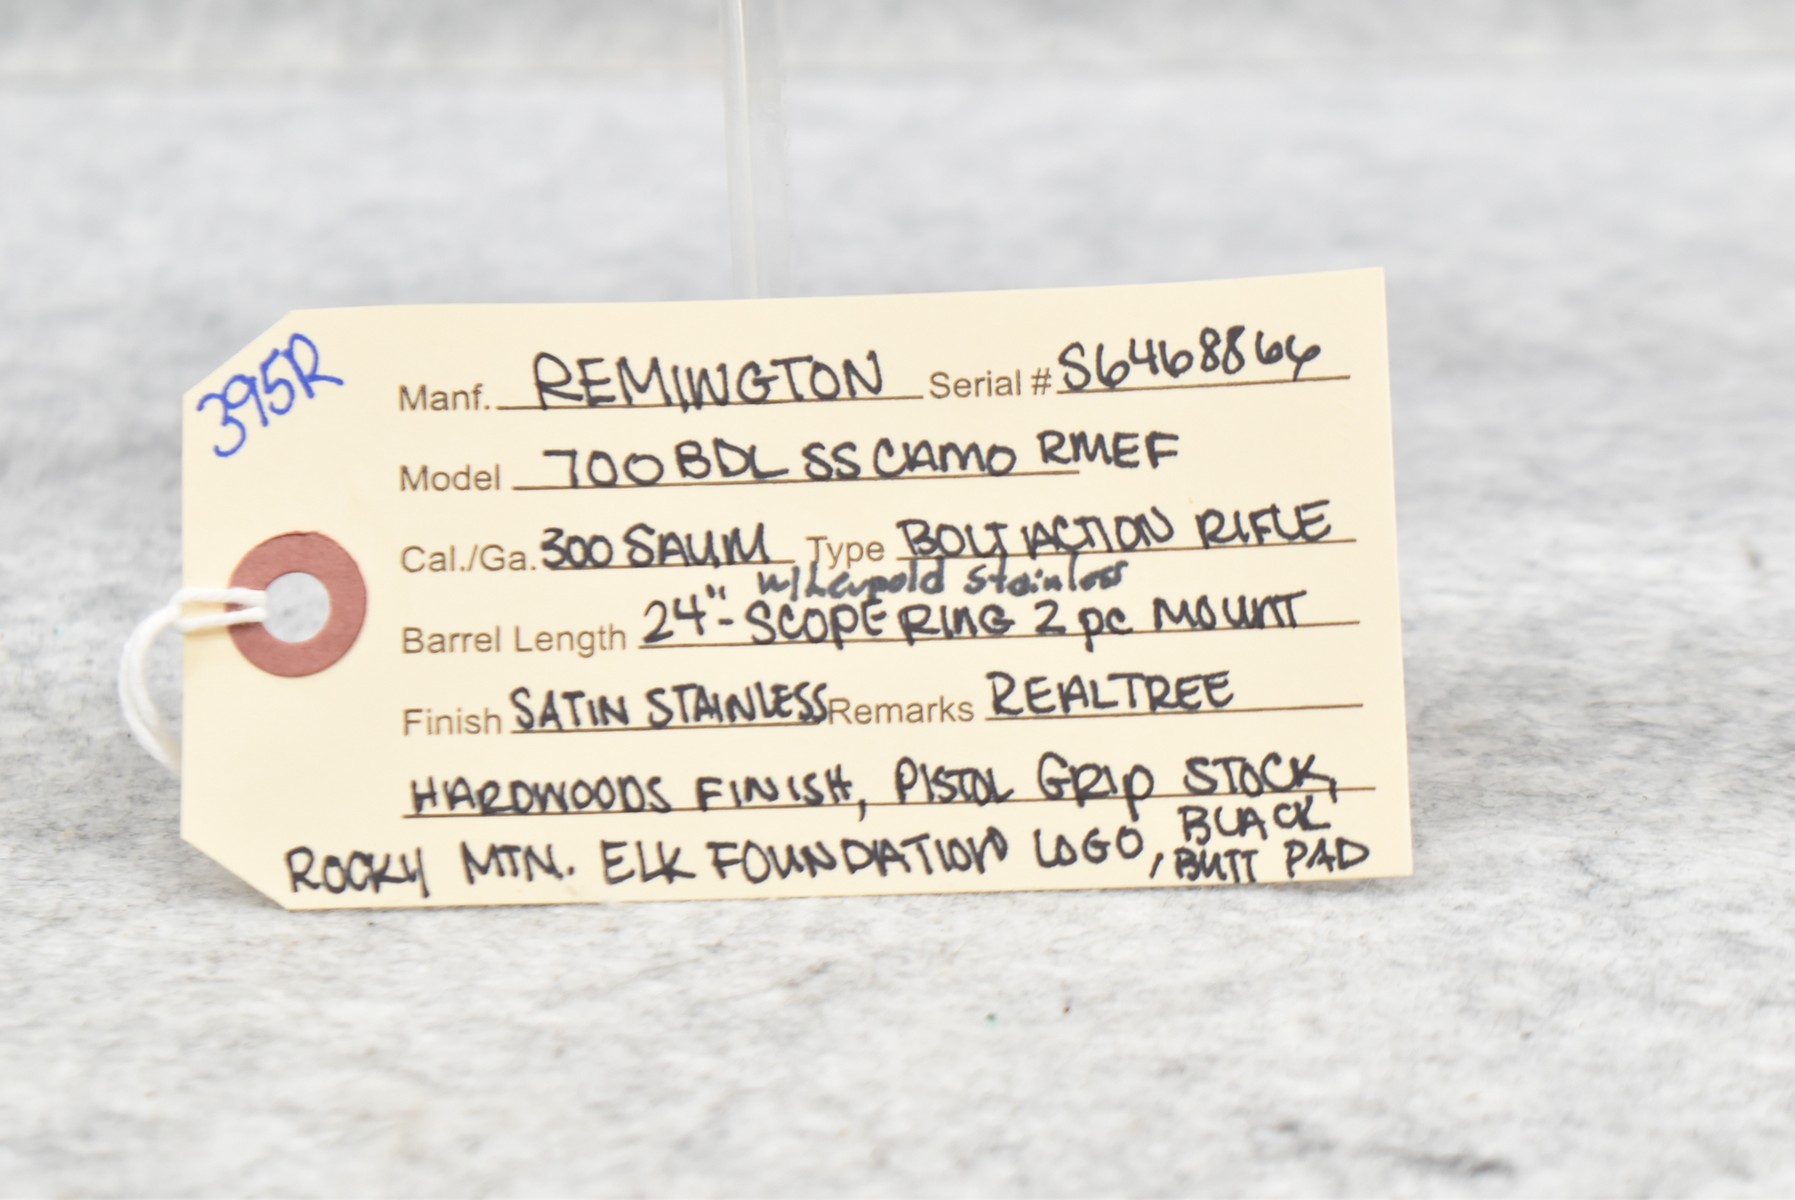 395R
Manf. REMINGTON Serial # S6468866
Model 700 BDL SS CAMO RMEF
Cal./Ga. 300 SAUM Type BOLT ACTION RIFLE
w/Leupold Stainless
Barrel Length 24"- SCOPE RING 2 pc MOUNT
Finish SATIN STAINLESS Remarks REALTREE
HARDWOODS FINISH, PISTOL GRIP STOCK,
ROCKY MTN. ELK FOUNDATION LOGO, BLACK
BUTT PAD